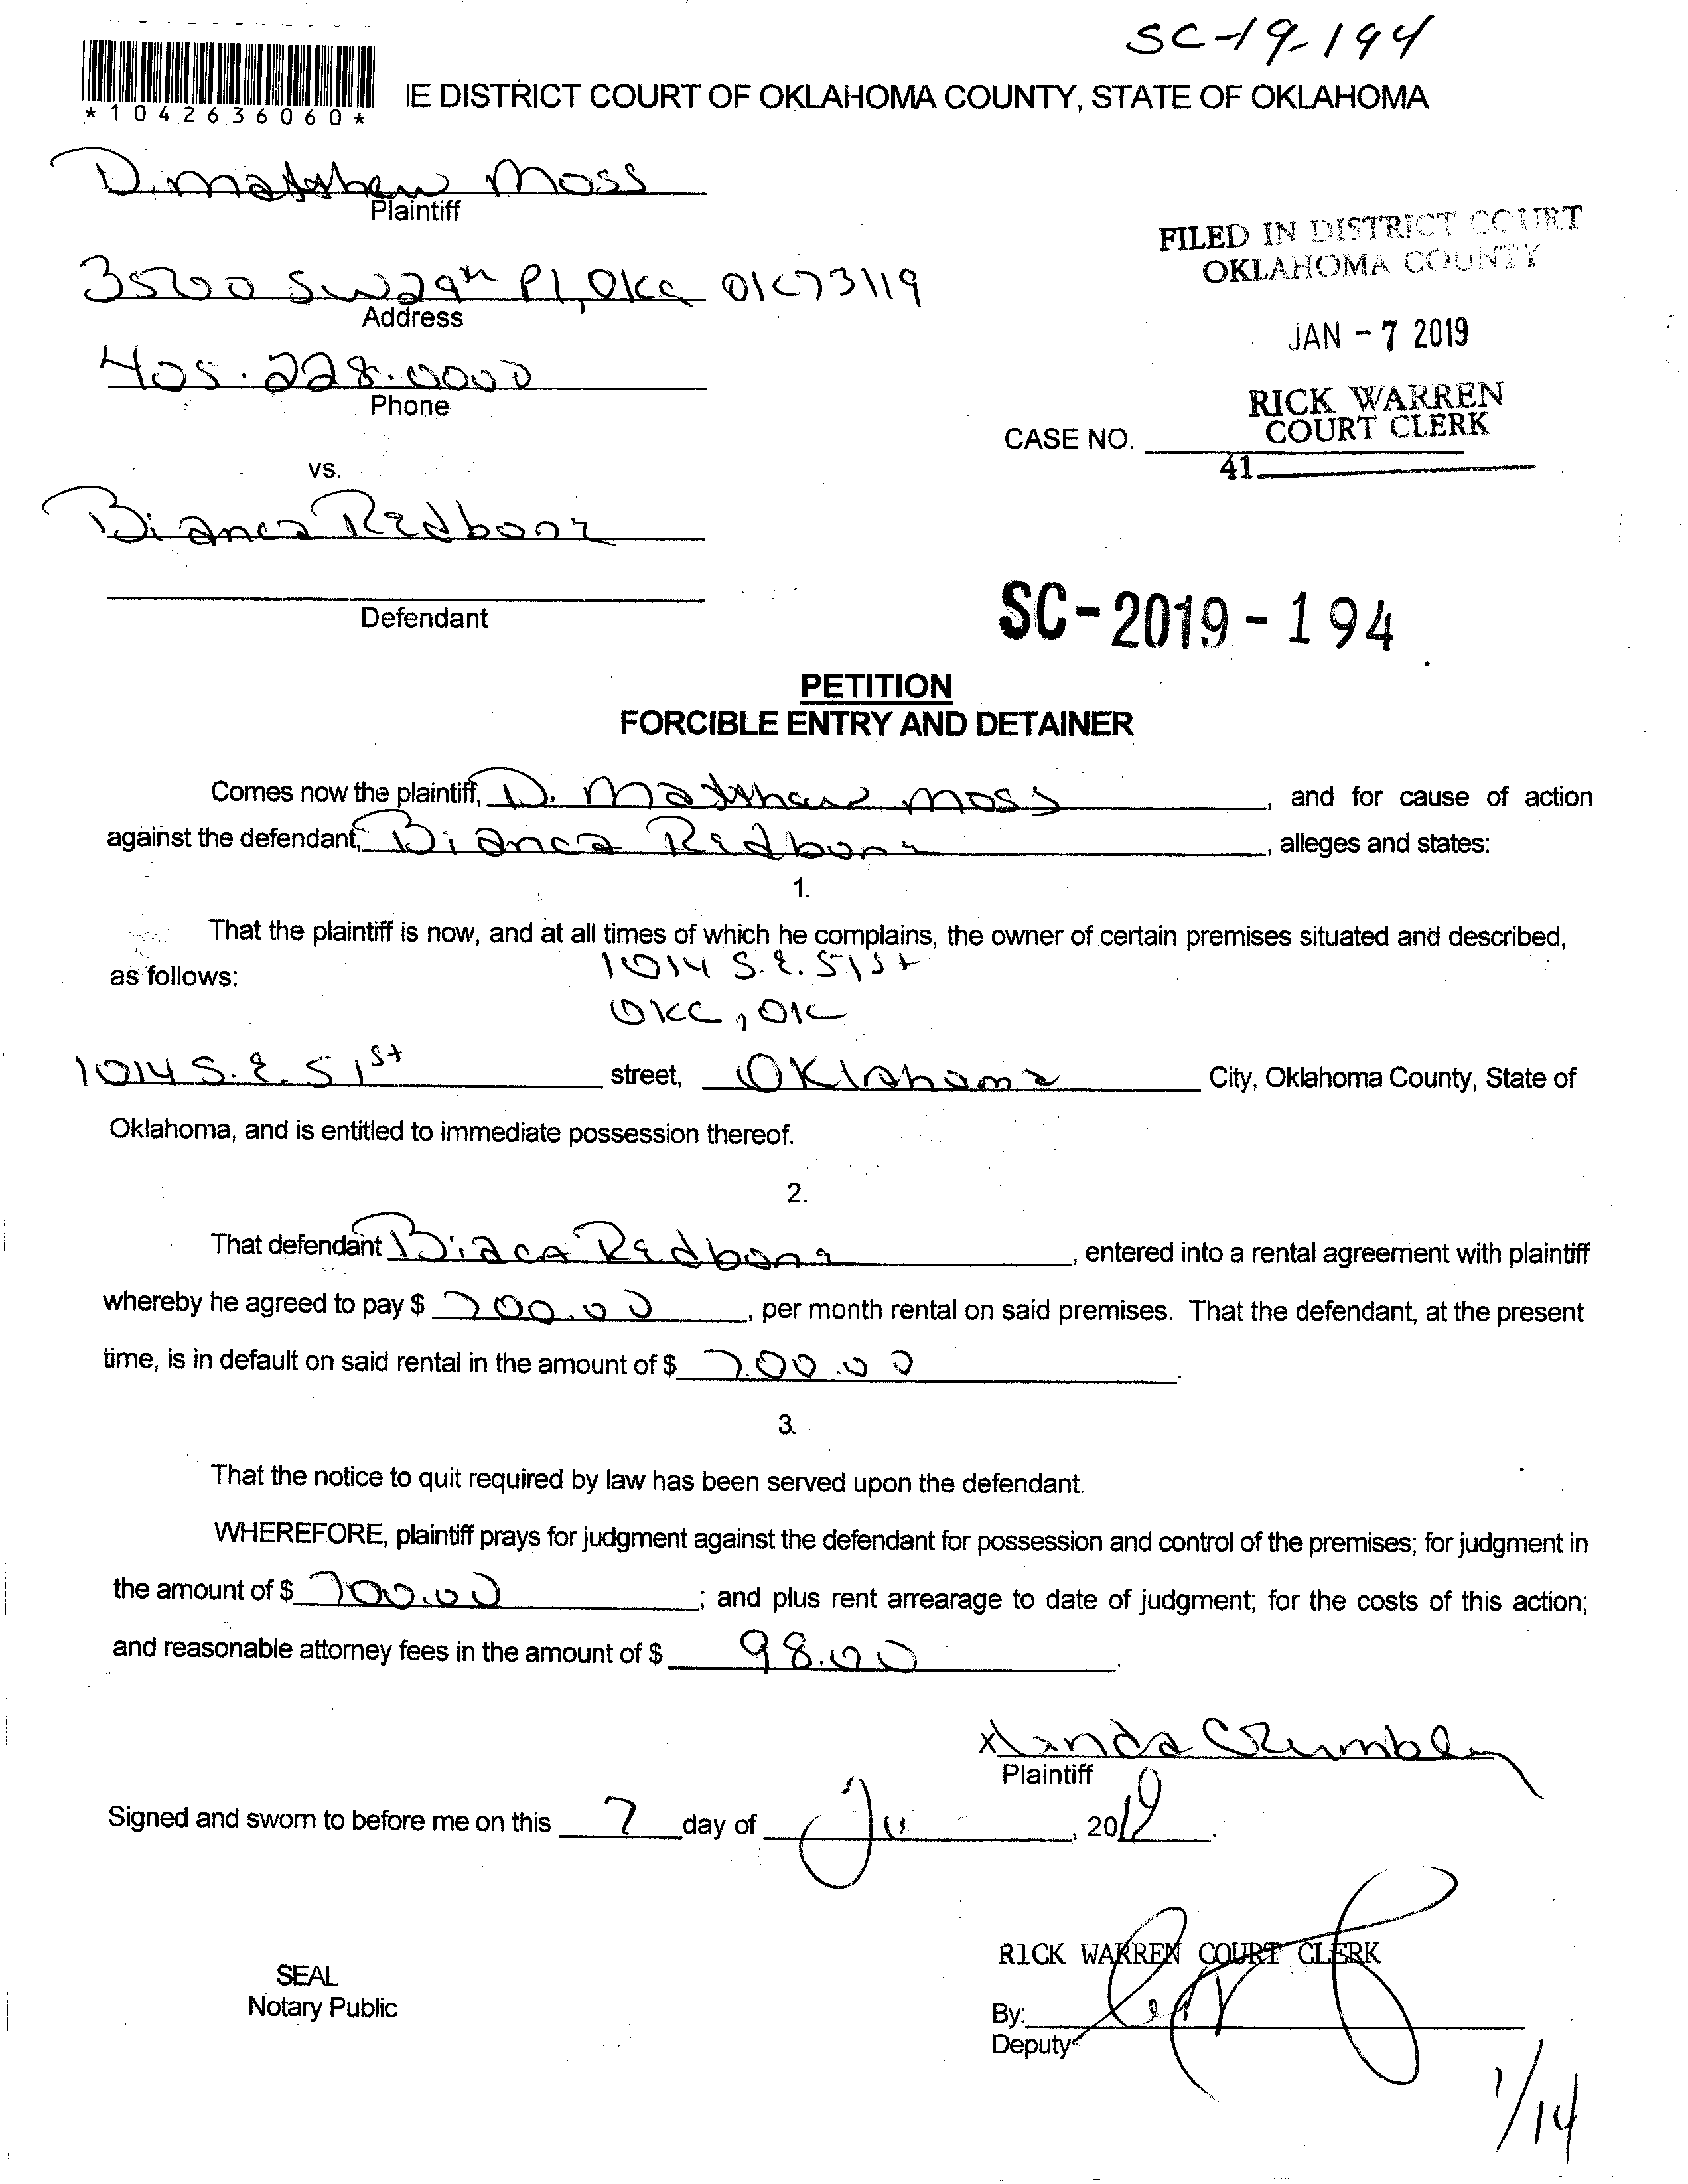 SC-19-194
*1042636060*
IE DISTRICT COURT OF OKLAHOMA COUNTY, STATE OF OKLAHOMA
D. Matthew Moss
Plaintiff
3500 SW 29th Pl, OKC OK 73119
Address
405.228.0000
Phone
FILED IN DISTRICT COURT
OKLAHOMA COUNTY
JAN - 7 2019
RICK WARREN
COURT CLERK
CASE NO.
41
vs.
Bianca Redbone
Defendant
SC-2019-194
PETITION
FORCIBLE ENTRY AND DETAINER
Comes now the plaintiff, D. Matthew Moss, and for cause of action
against the defendant, Bianca Redbone, alleges and states:
1.
That the plaintiff is now, and at all times of which he complains, the owner of certain premises situated and described,
as follows: 1014 S.E. 51st
OKC, OK
1014 S.E. 51st street, Oklahoma City, Oklahoma County, State of
Oklahoma, and is entitled to immediate possession thereof.
2.
That defendant Biaca Redbone, entered into a rental agreement with plaintiff
whereby he agreed to pay $ 700.00, per month rental on said premises. That the defendant, at the present
time, is in default on said rental in the amount of $ 700.00.
3.
That the notice to quit required by law has been served upon the defendant.
WHEREFORE, plaintiff prays for judgment against the defendant for possession and control of the premises; for judgment in
the amount of $ 700.00; and plus rent arrearage to date of judgment; for the costs of this action;
and reasonable attorney fees in the amount of $ 98.00.
x Linda Crumbley
Plaintiff
Signed and sworn to before me on this 7 day of , 2019.
RICK WARREN COURT CLERK
SEAL
Notary Public
By:
Deputy
1/14